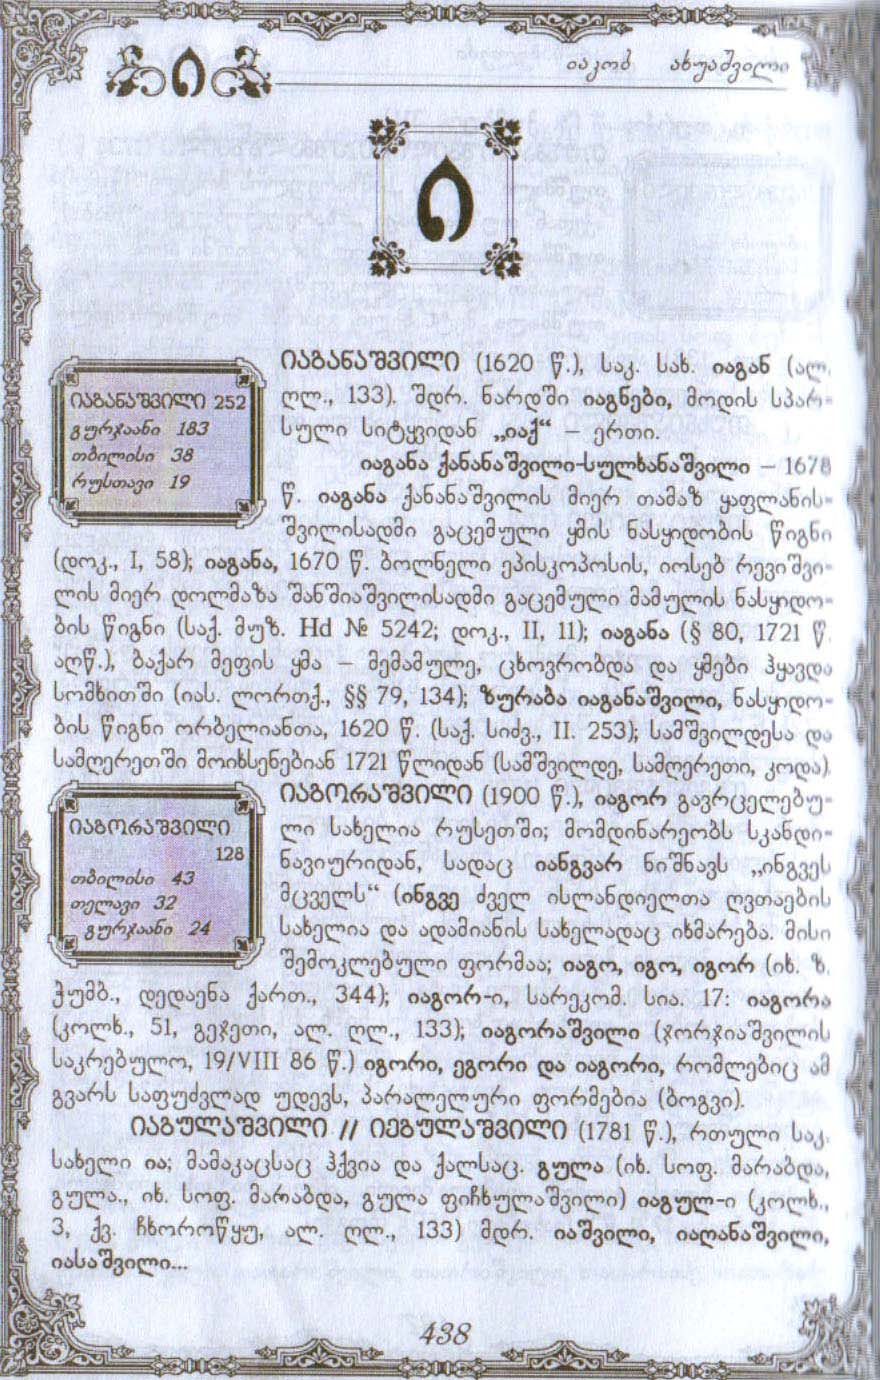 ი
იაკობ ახუაშვილი
ი
იაგანაშვილი 252
გურჯაანი 183
თბილისი 38
რუსთავი 19
იაგანაშვილი (1620 წ.), საკ. სახ. იაგან (ალ.
ღლ., 133). შდრ. ნარდში იაგნები, მოდის სპარ-
სული სიტყვიდან „იაქ“ – ერთი.
იაგანა ქანანაშვილი-სულხანაშვილი – 1678
წ. იაგანა ქანანაშვილის მიერ თამაზ ყაფლანის-
შვილისადმი გაცემული ყმის ნასყიდობის წიგნი
(დოკ., I, 58); იაგანა, 1670 წ. ბოლნელი ეპისკოპოსის, იოსებ რევიშვი-
ლის მიერ დოლმაზა შანშიაშვილისადმი გაცემული მამულის ნასყიდო-
ბის წიგნი (საქ. მუზ. Hd № 5242; დოკ., II, 11); იაგანა (§ 80, 1721 წ.
აღწ.), ბაქარ მეფის ყმა – მემამულე, ცხოვრობდა და ყმები ჰყავდა
სომხითში (იას. ლორთქ., §§ 79, 134); ზურაბა იაგანაშვილი, ნასყიდო-
ბის წიგნი ორბელიანთა, 1620 წ. (საქ. სიძვ., II. 253); სამშვილდესა და
სამღერეთში მოიხსენებიან 1721 წლიდან (სამშვილდე, სამღერეთი, კოდა).
იაგორაშვილი
128
თბილისი 43
თელავი 32
გურჯაანი 24
იაგორაშვილი (1900 წ.), იაგორ გავრცელებუ-
ლი სახელია რუსეთში; მომდინარეობს სკანდი-
ნავიურიდან, სადაც იანგვარ ნიშნავს „ინგვეს
მცველს“ (ინგვე ძველ ისლანდიელთა ღვთაების
სახელია და ადამიანის სახელადაც იხმარება. მისი
შემოკლებული ფორმაა; იაგო, იგო, იგორ (იხ. ზ.
ჭუმბ., დედაენა ქართ., 344); იაგორ-ი, სარეკომ. სია. 17: იაგორა
(კოლხ., 51, გეჯეთი, ალ. ღლ., 133); იაგორაშვილი (ჯორჯიაშვილის
საკრებულო, 19/VIII 86 წ.) იგორი, ეგორი და იაგორი, რომლებიც ამ
გვარს საფუძვლად უდევს, პარალელური ფორმებია (ბოგვი).
იაგულაშვილი // იეგულაშვილი (1781 წ.), რთული საკ.
სახელი ია; მამაკაცსაც ჰქვია და ქალსაც. გულა (იხ. სოფ. მარაბდა,
გულა., იხ. სოფ. მარაბდა, გულა ფიჩხულაშვილი) იაგულ-ი (კოლხ.,
3, ქვ. ჩხოროწყუ, ალ. ღლ., 133) მდრ. იაშვილი, იაღანაშვილი,
იასაშვილი...
438